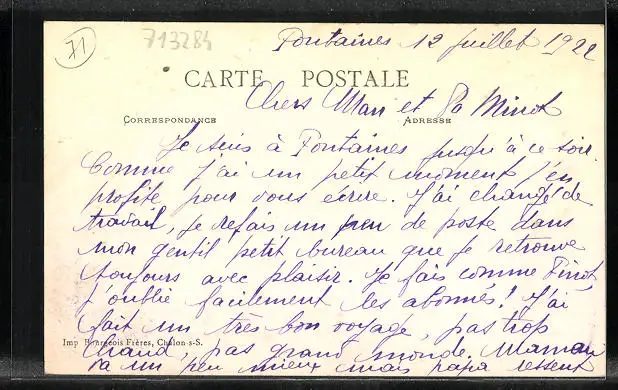 71
713284
Fontaines 12 juillet 1922
CARTE POSTALE
Chers Man et Pa Minot
CORRESPONDANCE
ADRESSE
Je suis à Fontaines jusqu'à ce soir.
Comme j'ai un petit moment j'en
profite pour vous écrire. J'ai changé de
travail, je refais un peu de poste dans
mon gentil petit bureau que je retrouve
toujours avec plaisir. Je fais comme Finot,
j'oublie facilement les abonnés! J'ai
fait un très bon voyage, pas trop
Imp Bourgeois Frères, Chalon-s-S.
chaud, pas grand monde. Maman
va un peu mieux mais papa ressent